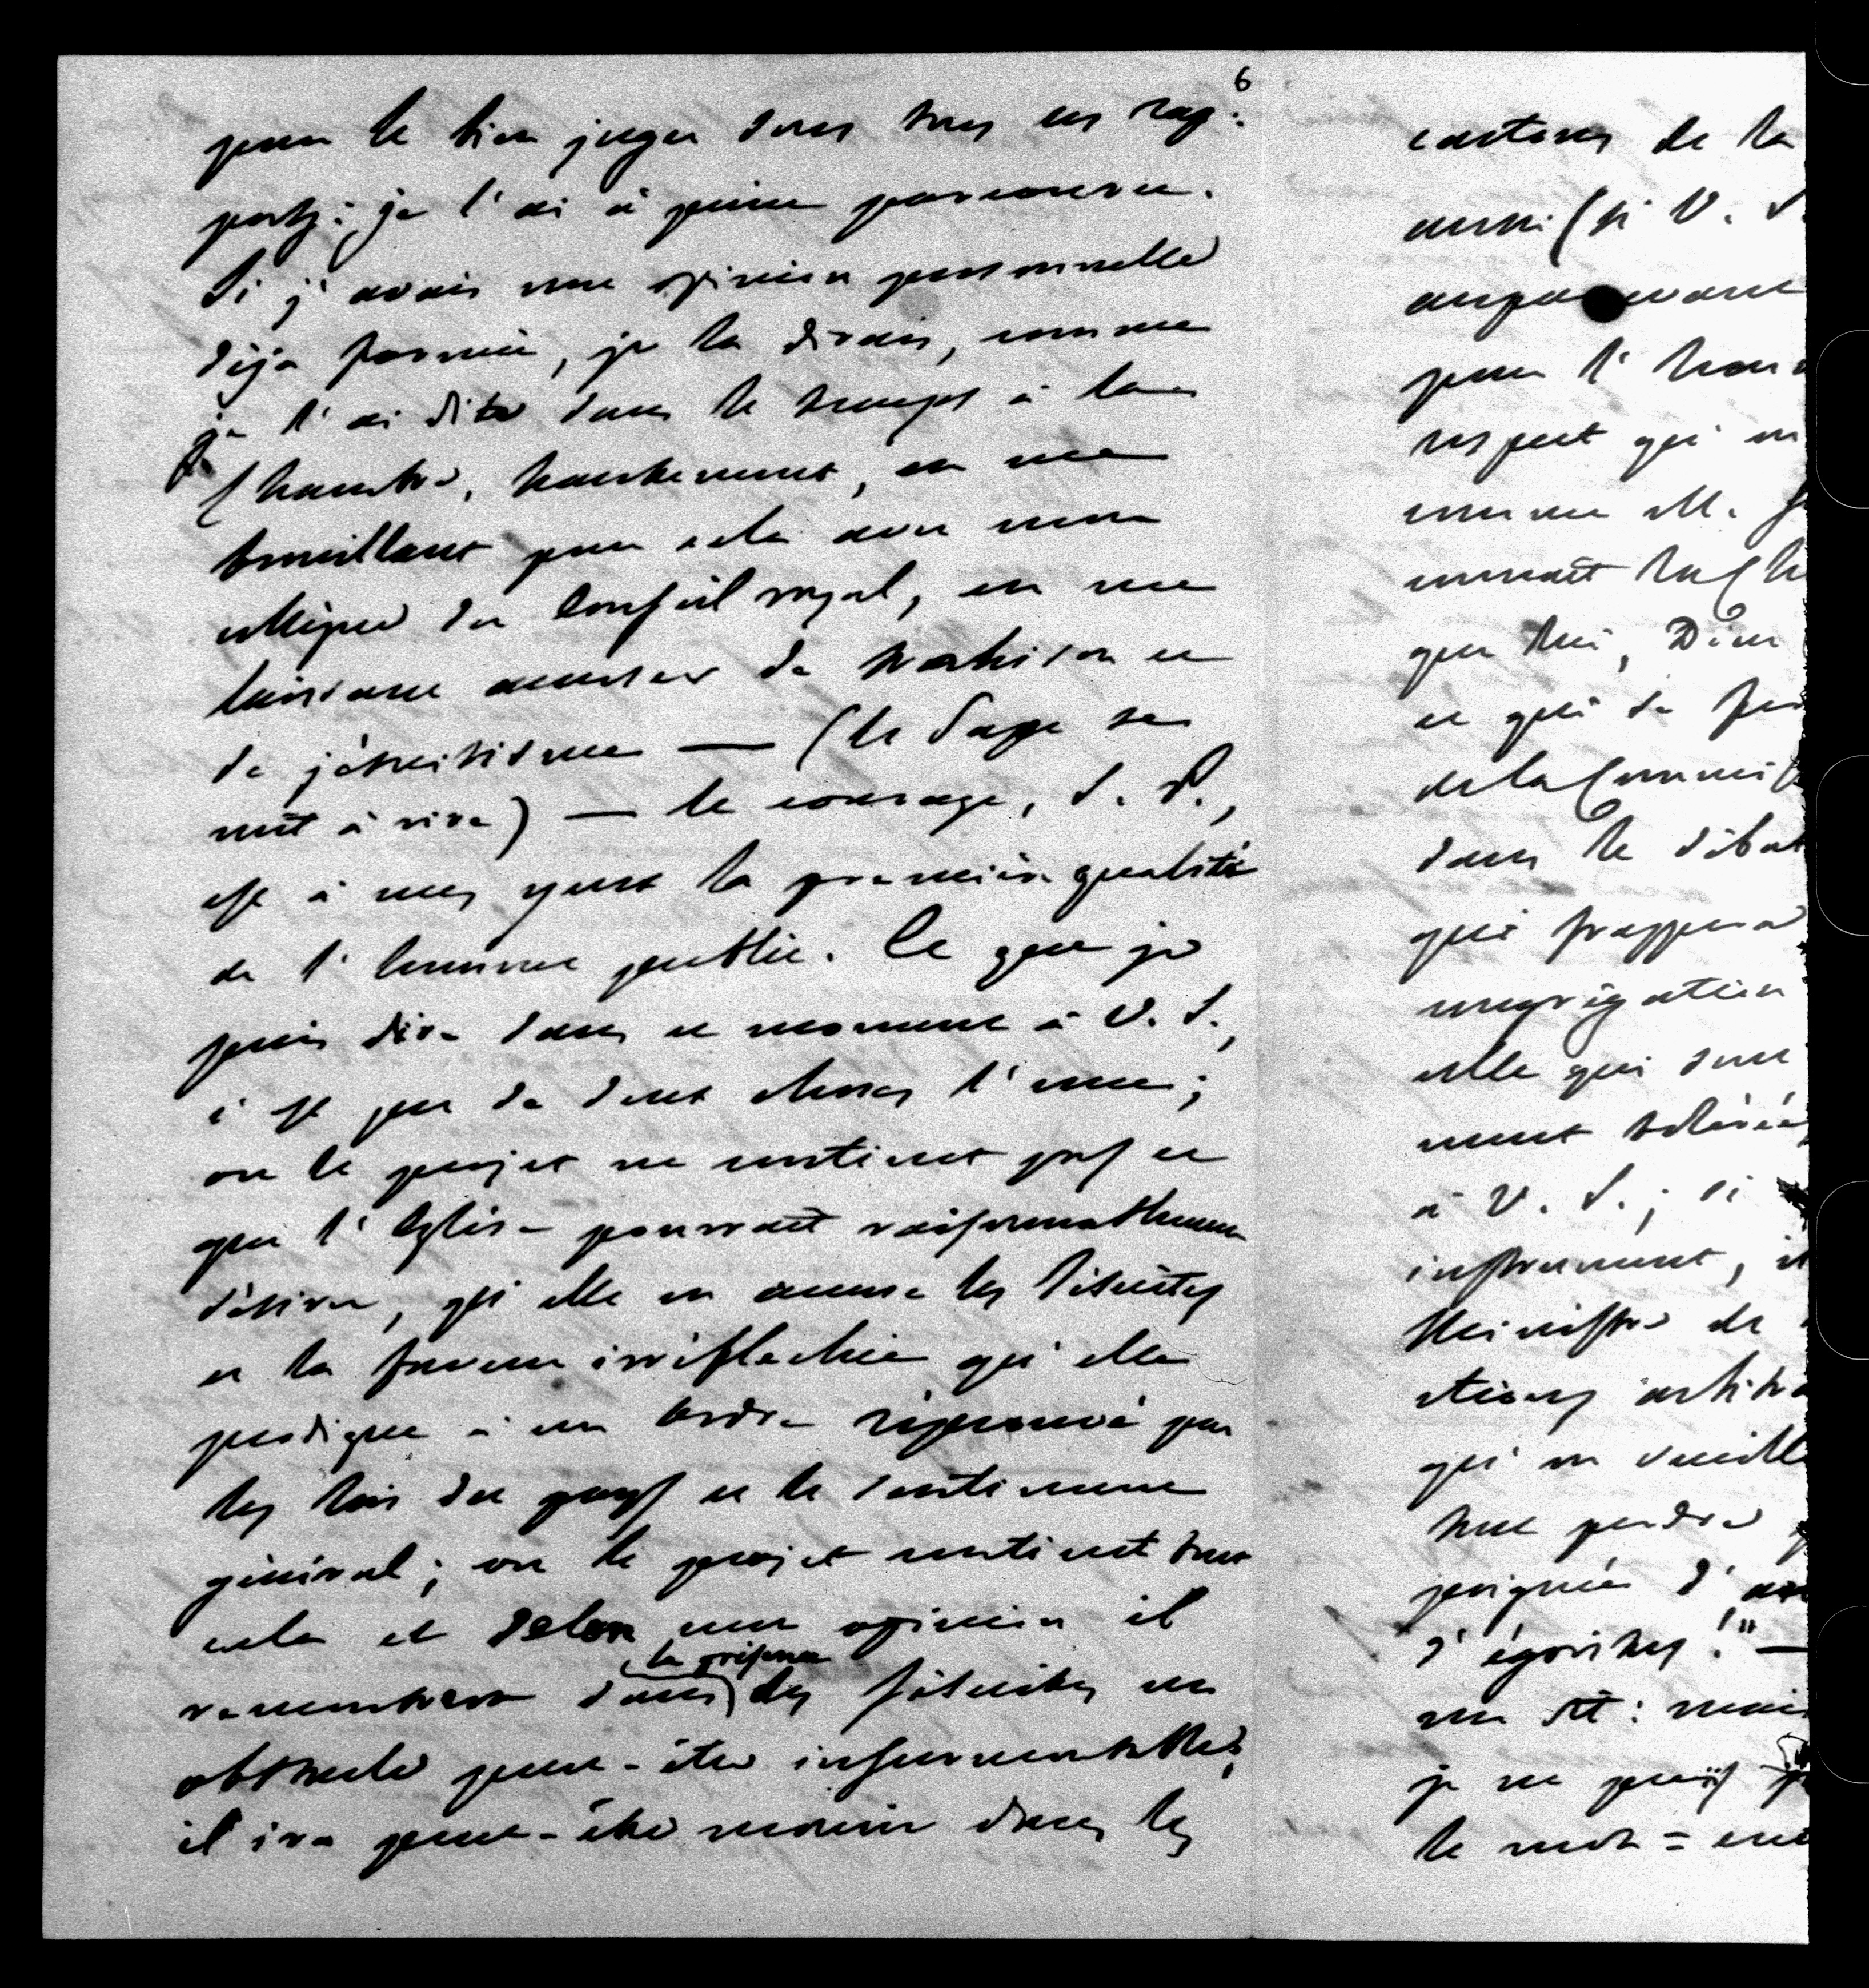 6
pour le bien juger dans tous ses rap-
ports: je l'ai à peine parcourue.
Si j'avais une opinion personnelle
déja formée, je la dirais, comme
je l'ai dite dans le temps à la
Chambre, hautement, en me
brouillant pour cela avec mon
collègue du Conseil royal, en me
laissant accuser de trahison et
de jésuitisme — (le Pape se
mit à rire) — le courage, S. P.,
est à mes yeux la première qualité
de l'homme public. Ce que je
puis dire dans ce moment à V. S.,
c'est que de deux choses l'une;
ou le projet ne contient pas ce
que l'Eglise pourrait raisonnablement
désirer, qu'elle en accuse les Jésuites
et la faveur irréfléchie qu'elle
prodigue à un Ordre réprouvé par
les lois du pays et le sentiment
général; ou le projet contient tout
cela et selon mon opinion il
la présence
rencontrera dans des Jésuites un
obstacle peut-être insurmontable;
il ira peut-être mourir dans les
cartons de la
aussi (si V. S.
auparavant
pour l'hon
respect qui m
comme elle
connaît la Ch
que lui, Dieu
ce qui se
de la Commis
dans le débat
qui frappera
congrégation
celle qui sont
ment tolérée
à V. S.; si
instrument,
Ministre de
ctions arbitra
qu'on veuille
tout perdre
poignée d'
d'égoïstes!" —
un St: mais
je ne puis
le mot =